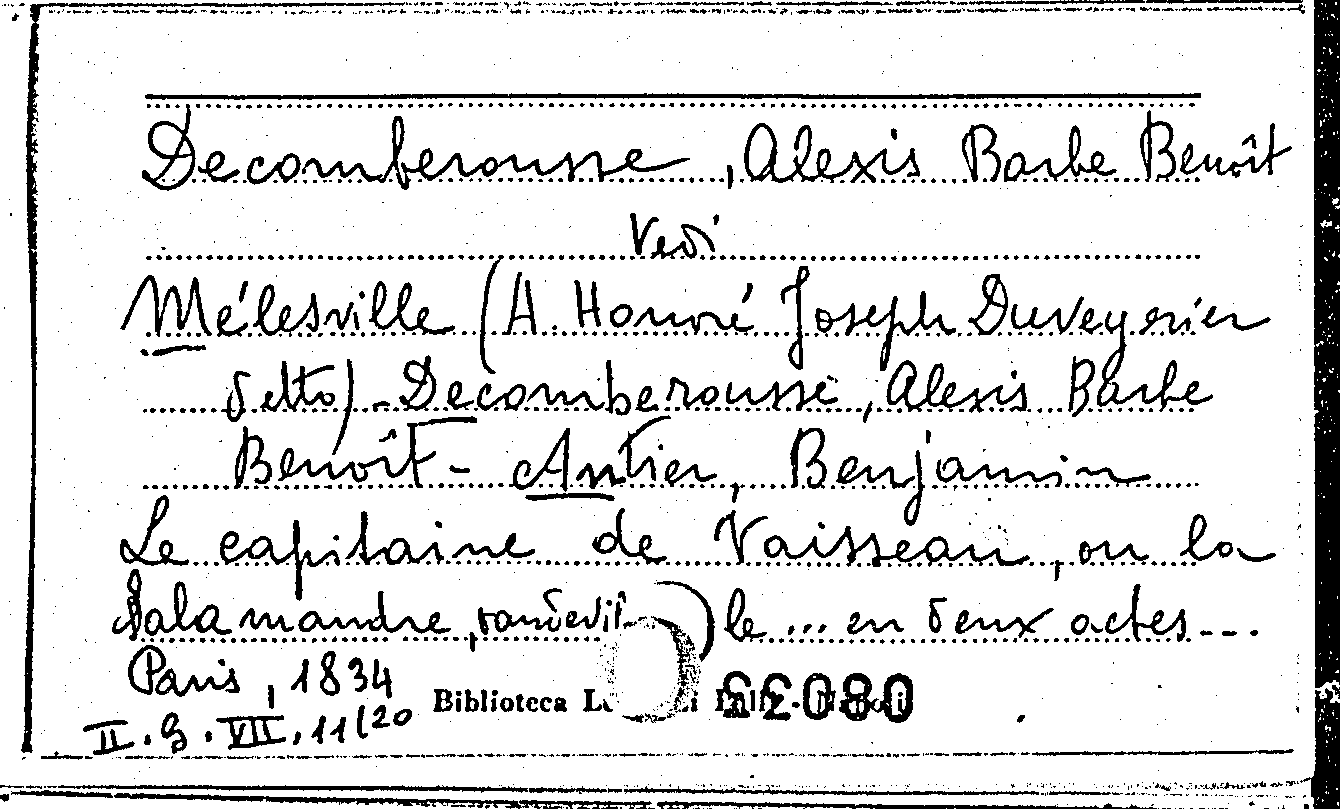 Decomberousse, Alexis Barbe Benoît
Vedi
Mélesville (A. Honoré Joseph Duveyrier
detto) - Decomberousse, Alexis Barbe
Benoît - Antier, Benjamin
Le capitaine de Vaisseau, ou la
Salamandre, vaudevil le ... en deux actes ...
Paris, 1834
Biblioteca
II. G. VII. 11(20